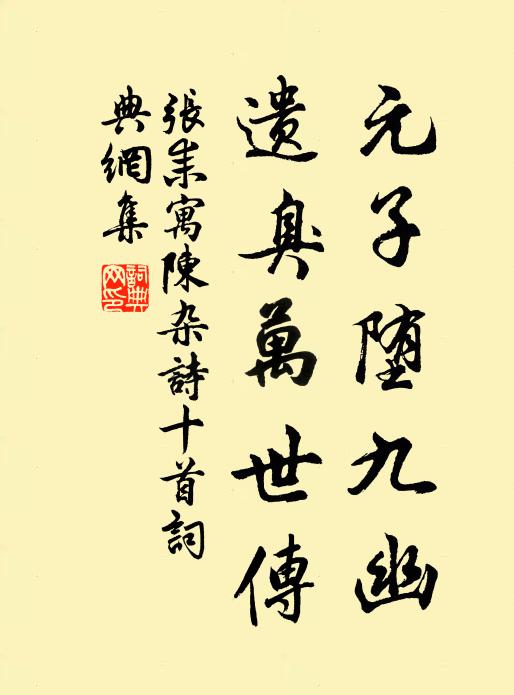 元子堕九幽
遺臭萬世傳
張耒寓陳杂詩十首詞
典網集
詞典
网印